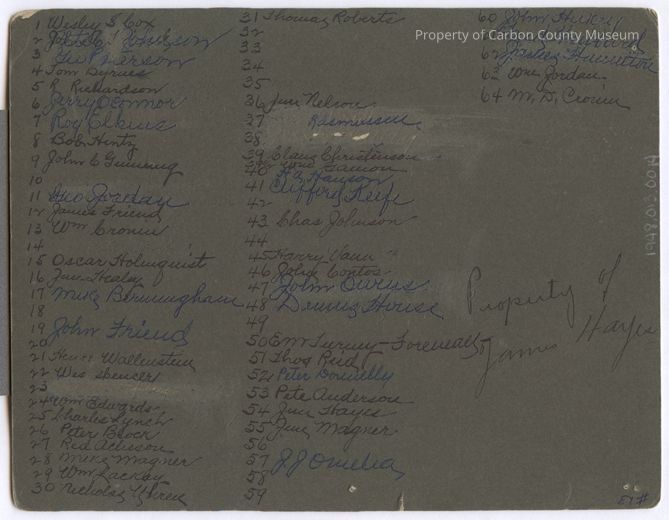 1 Wesley S Cox
2 Pete G Johnson
3 Geo Pierson
4 Tom Byrnes
5 R Richardson
6 Jerry O'Connor
7 Roy Elkins
8 Bob Hintz
9 John C
10
11 Geo Jordan
12 James Friend
13 Wm Cronin
14
15 Oscar Holmquist
16 Jim Healy
17 Mike Bermingham
18
19 John Friend
20
21 Wallenstein
22 Wes Spencer
23
24 Wm Edwards
25 Charles Lynch
26 Peter Block
27 Red
28 Mike Magner
29 Wm Lackey
30 Nicholas
31 Thomas Roberts
32
33
34
35
36 Jim Nelson
37 Rasmussen
38
39 Claus Christenson
40 Hanson
41 Clifford Keefe
42
43 Chas Johnson
44
45 Harry Vann
46 John Contos
47 John Owens
48 Dennis House
49
50 Em Turney - Foreman
51 Thos Reid
52 Peter Donnelly
53 Pete Anderson
54 Jim Hayes
55 Jim Magner
56
57 J J Omelia
58
59
60 John
Property of Carbon County Museum
62 James Hamilton
63 Wm Jordan
64 M. D. Cronin
Property of
James Hayes
1948.013.004